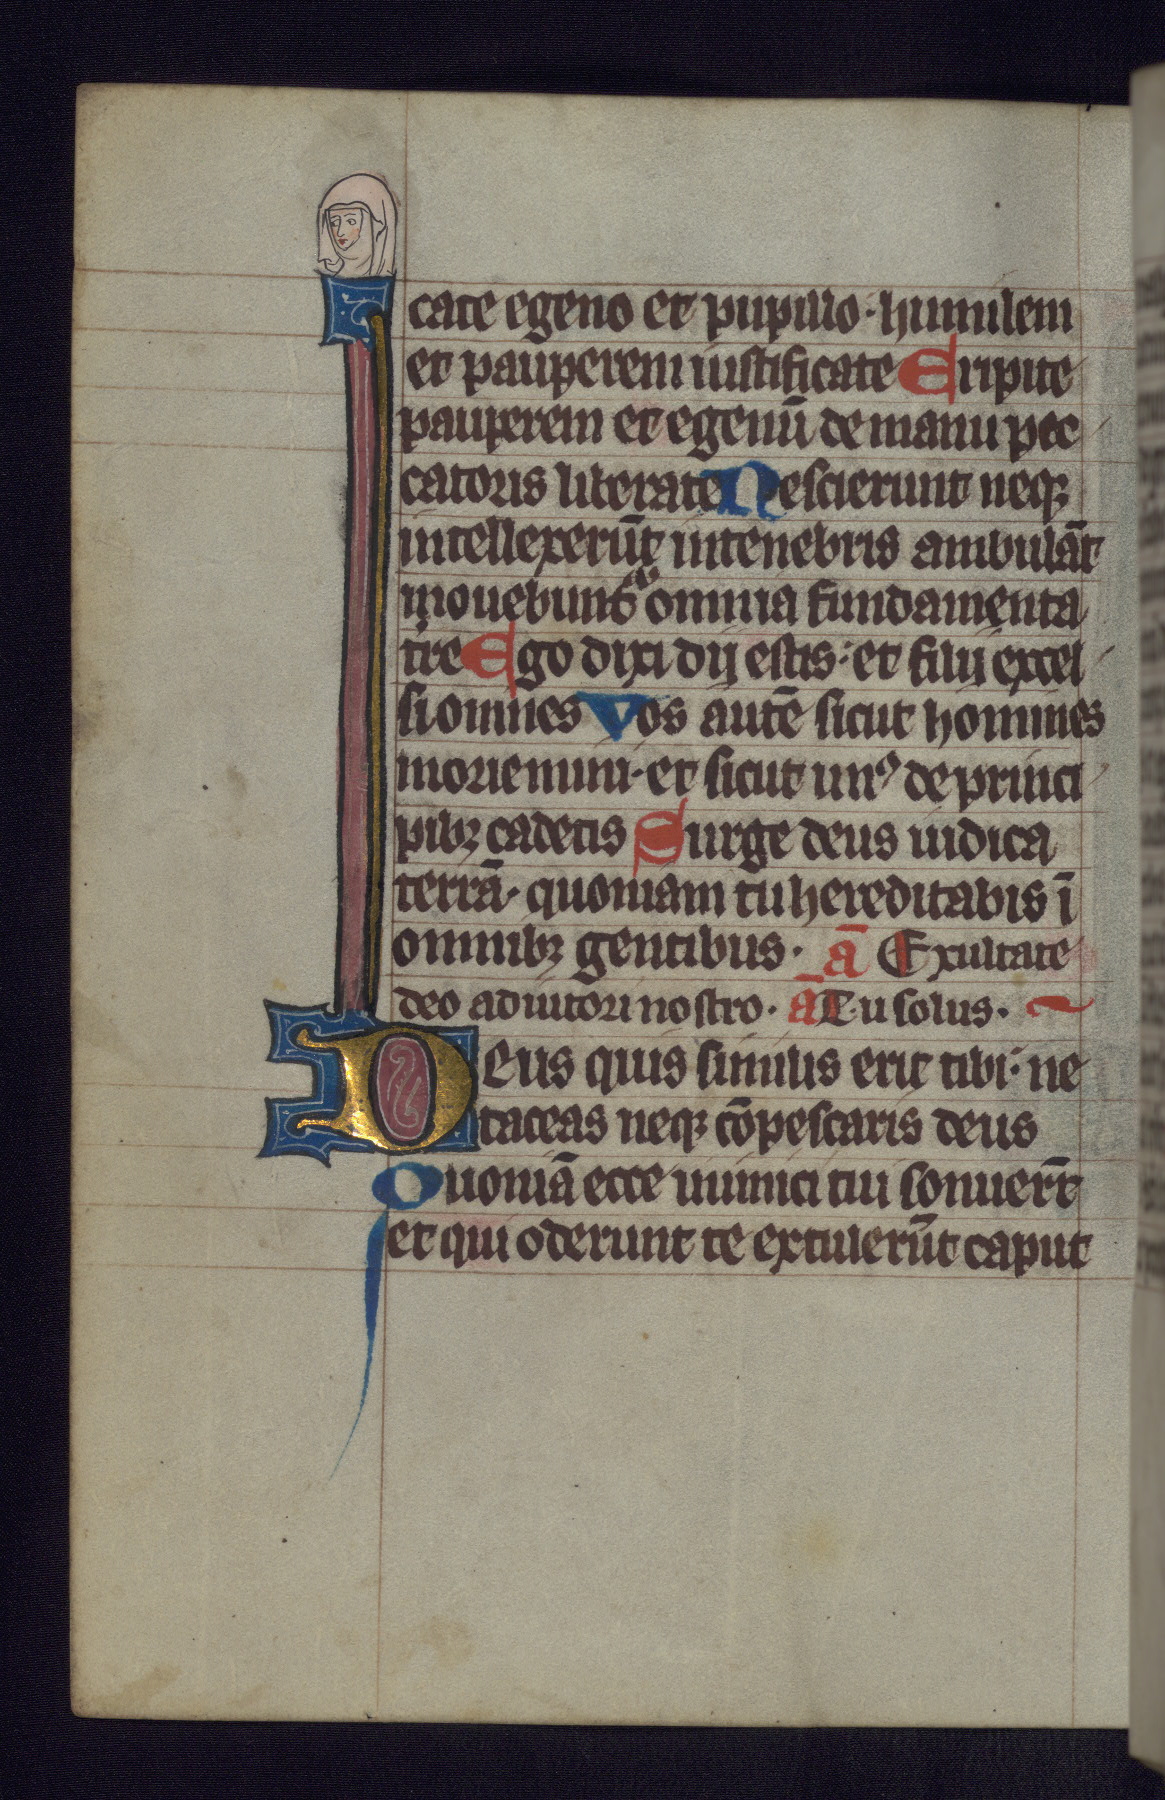 cate egeno et pupillo · humilem
et pauperem iustificate Eripite
pauperem et egenū de manu pec
catoris liberate Nescierunt neqꝫ
intellexerūt in tenebris ambulāt
mouebunt᷑ omnia fundamenta
tr̄e Ego dixi dij estis · et filij excel
si omnes Vos autē sicut homines
moriemini · et sicut unꝰ de princi
pibꝫ cadetis Surge deus iudica
terrā · quoniam tu hereditabis ī
omnibꝫ gentibus · ā Exultate
deo adiutori nostro · ā Tu solus ·
Deus quis similis erit tibi · ne
taceas neqꝫ cōpescaris deus
Quoniā ecce inimici tui sonuer̄t
et qui oderunt te extulerūt caput